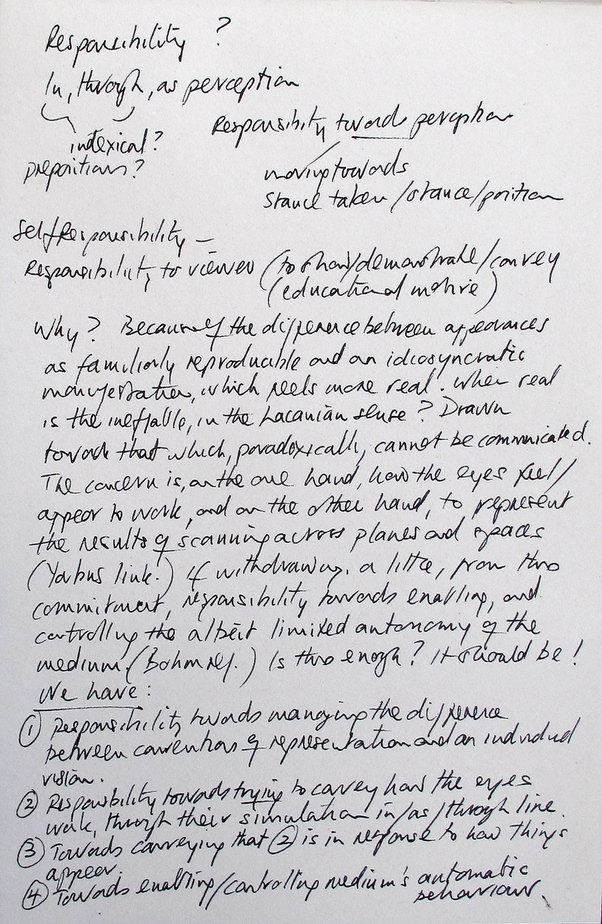 Responsibility ?
In, through, as perception
indexical?
prepositions?
Responsibility towards perception
moving towards
stance taken /stance/position
Self Responsibility –
Responsibility to viewer (to show/demonstrate/convey
(educational motive)
Why? Because of the difference between appearances
as familiarly reproducible and an ideosyncratic
manifestation, which feels more real. When real
is the ineffable, in the Lacanian sense? Drawn
towards that which, paradoxically, cannot be communicated.
The concern is, on the one hand, how the eyes feel/
appear to work, and on the other hand, to represent
the results of scanning across planes and spaces
(Yarbus link.) If withdrawing, a little, from this
commitment, responsibility towards enabling, and
controlling the albeit limited autonomy of the
medium (Bohm ref.) Is this enough? It should be!
We have:
① Responsibility towards managing the difference
between conventions of representation and an individual
vision.
② Responsibility towards trying to convey how the eyes
work, through their simulation in/as/through line.
③ Towards conveying that ② is in response to how things
appear.
④ Towards enabling/controlling medium's automatic
behaviour.